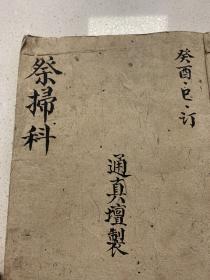 癸酉·巳·订
祭掃科
通真壇製